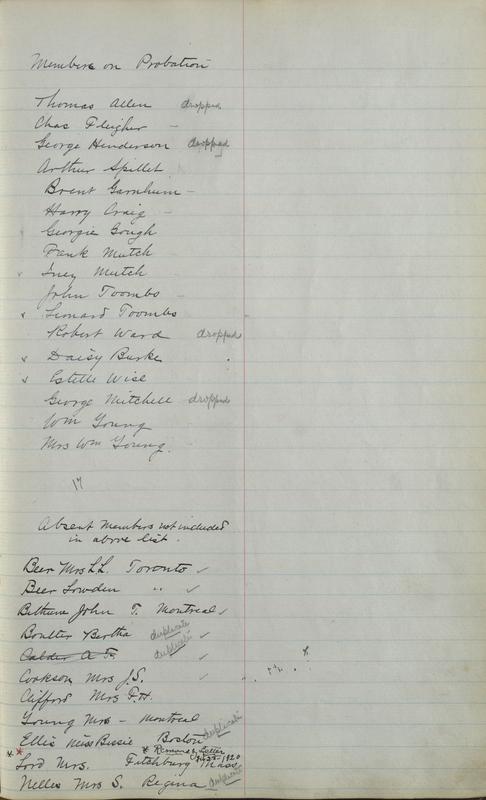 Members on Probation
Thomas Allen dropped
Chas Fleigher –
George Henderson dropped
Arthur Spillet
Brent Garnhum –
Harry Craig –
Georgie Gough
Frank Mutch
✓ Iney Mutch
John Toombs –
✓ Leonard Toombs
Robert Ward dropped
✓ Daisy Burke
✓ Estelle Wise
George Mitchell dropped
Wm Young
Mrs Wm Young.
17
Absent Members not included
in above list.
Beer Mrs L.L. Toronto ✓
Beer Lowden " ✓
Bethune John T. Montreal ✓
Boulter Bertha duplicate ✓
Calder A F. duplicate ✓
Cookson Mrs J.S. ✓
Clifford Mrs F.H.
Young Mrs – Montreal
Ellis Miss Bessie Boston duplicate
* Removed, Letter
* * Lord Mrs. Fitchburg Mass 1920
Nelles Mrs S. Regina duplicate